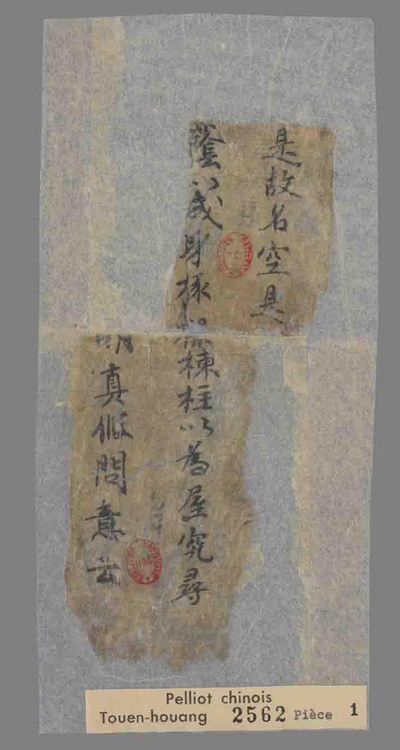 是故名空是
蔭以成身椽棟柱以為屋究尋
明真假問意云
Pelliot chinois
Touen-houang 2562 Pièce 1